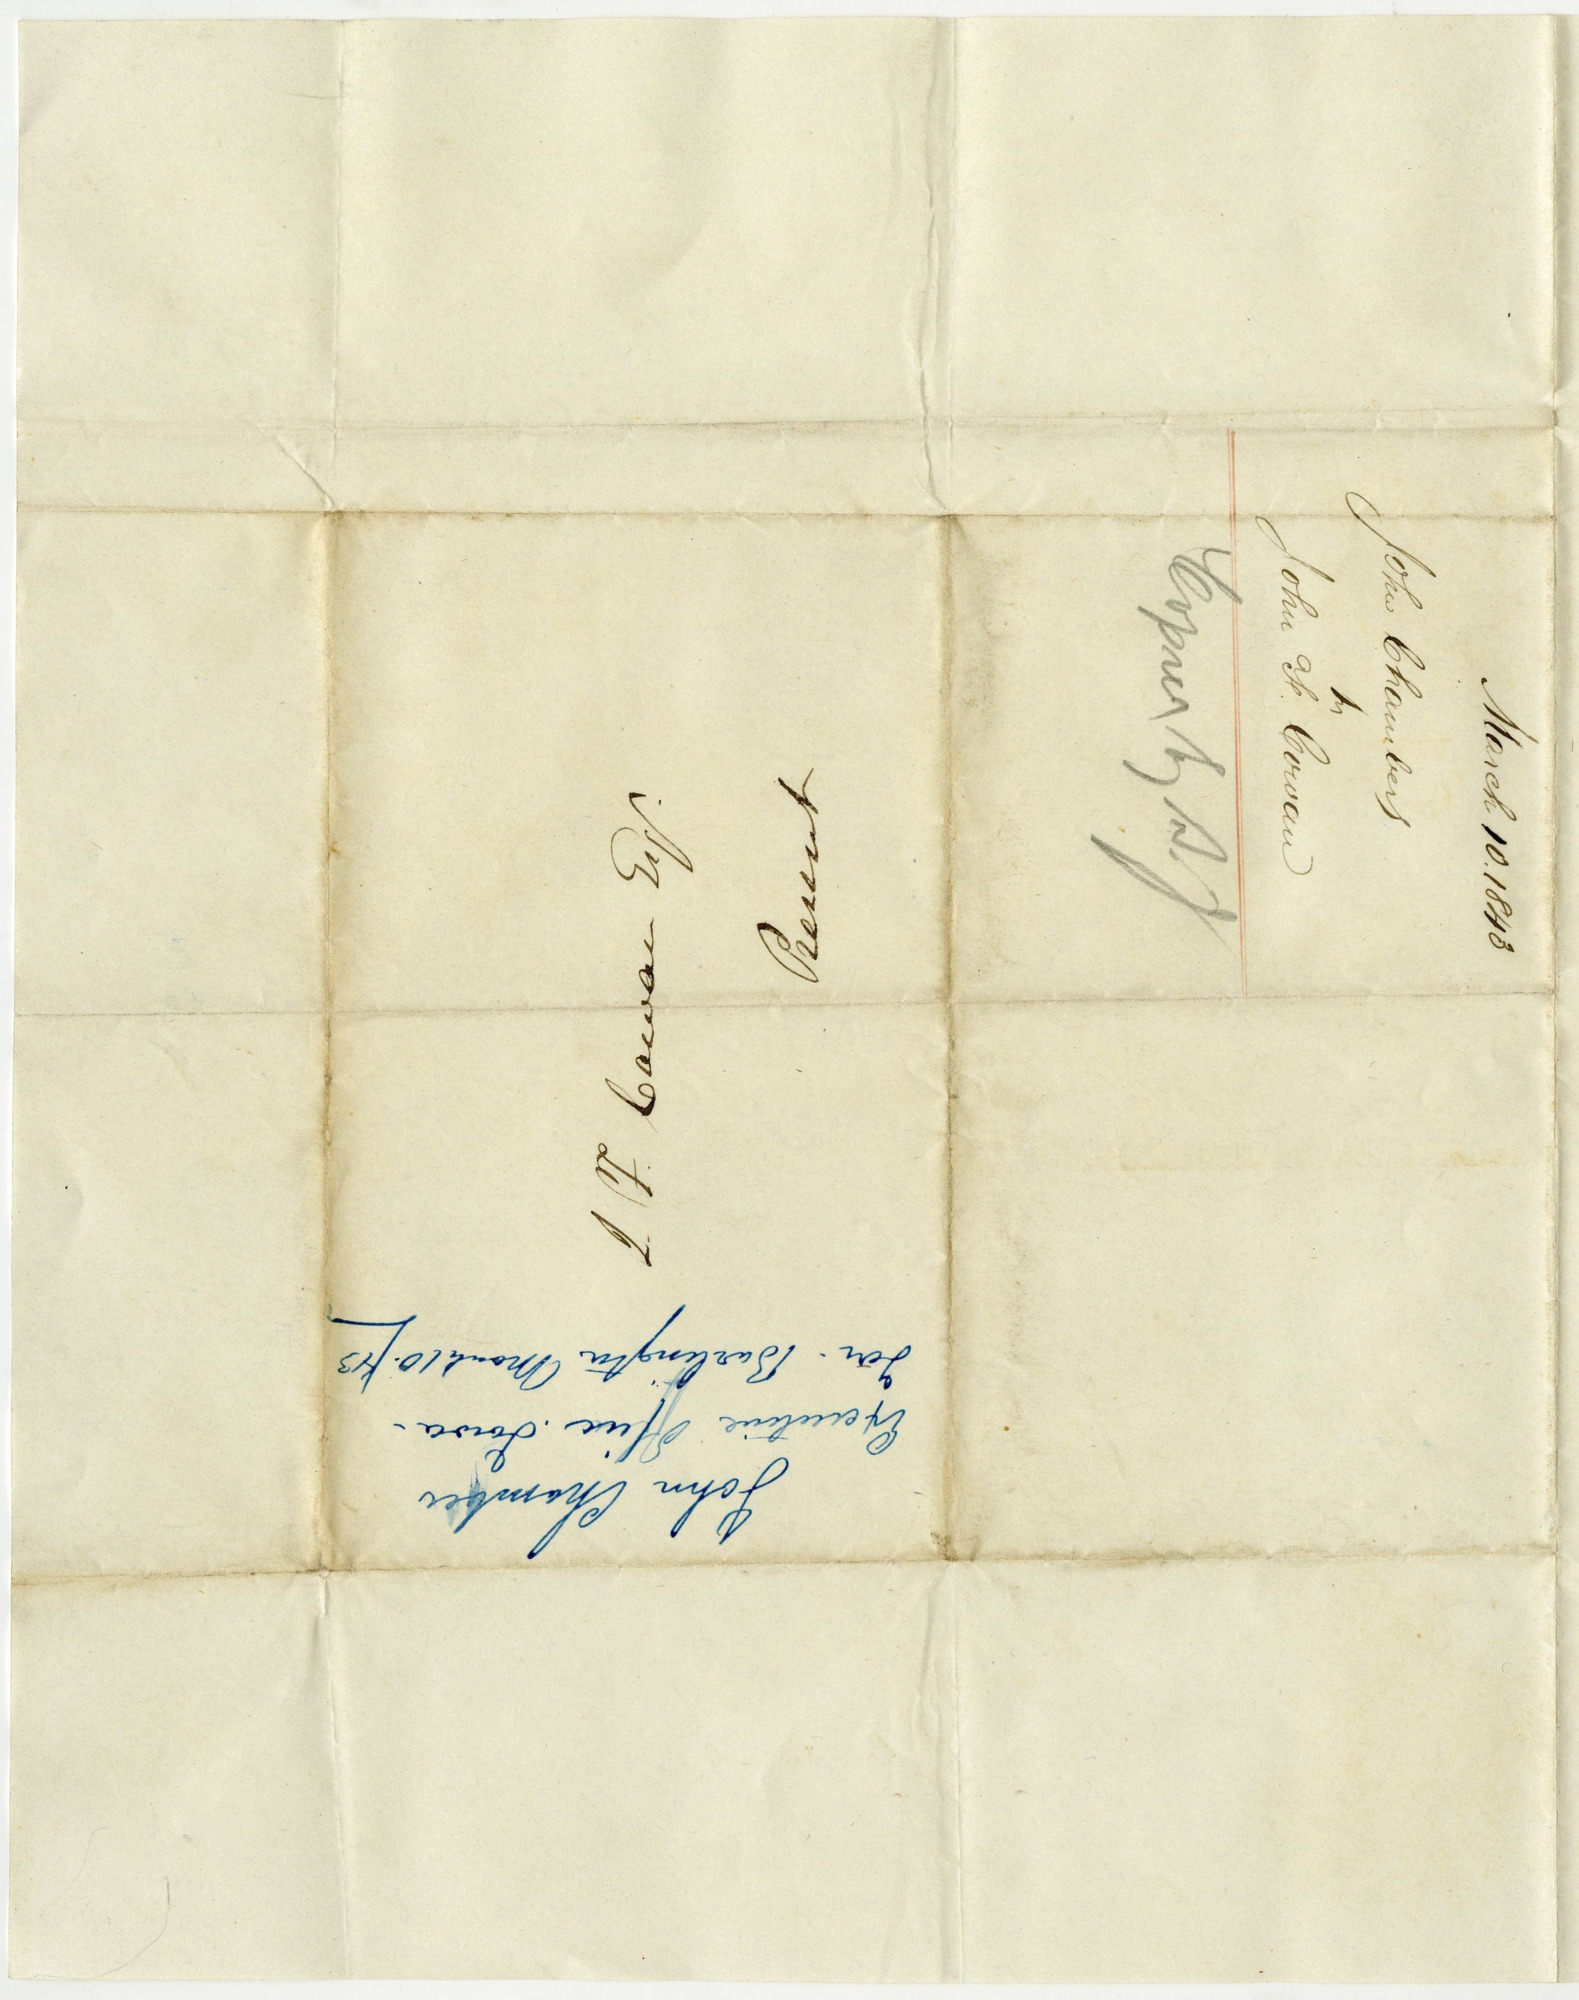 March 10. 1843
John Chambers
to
John F. Cowan
Copied by
J F. Cowan Esq.
Present
John Chambers
Executive Office Iowa -
Ter. Burlington March 10. /43